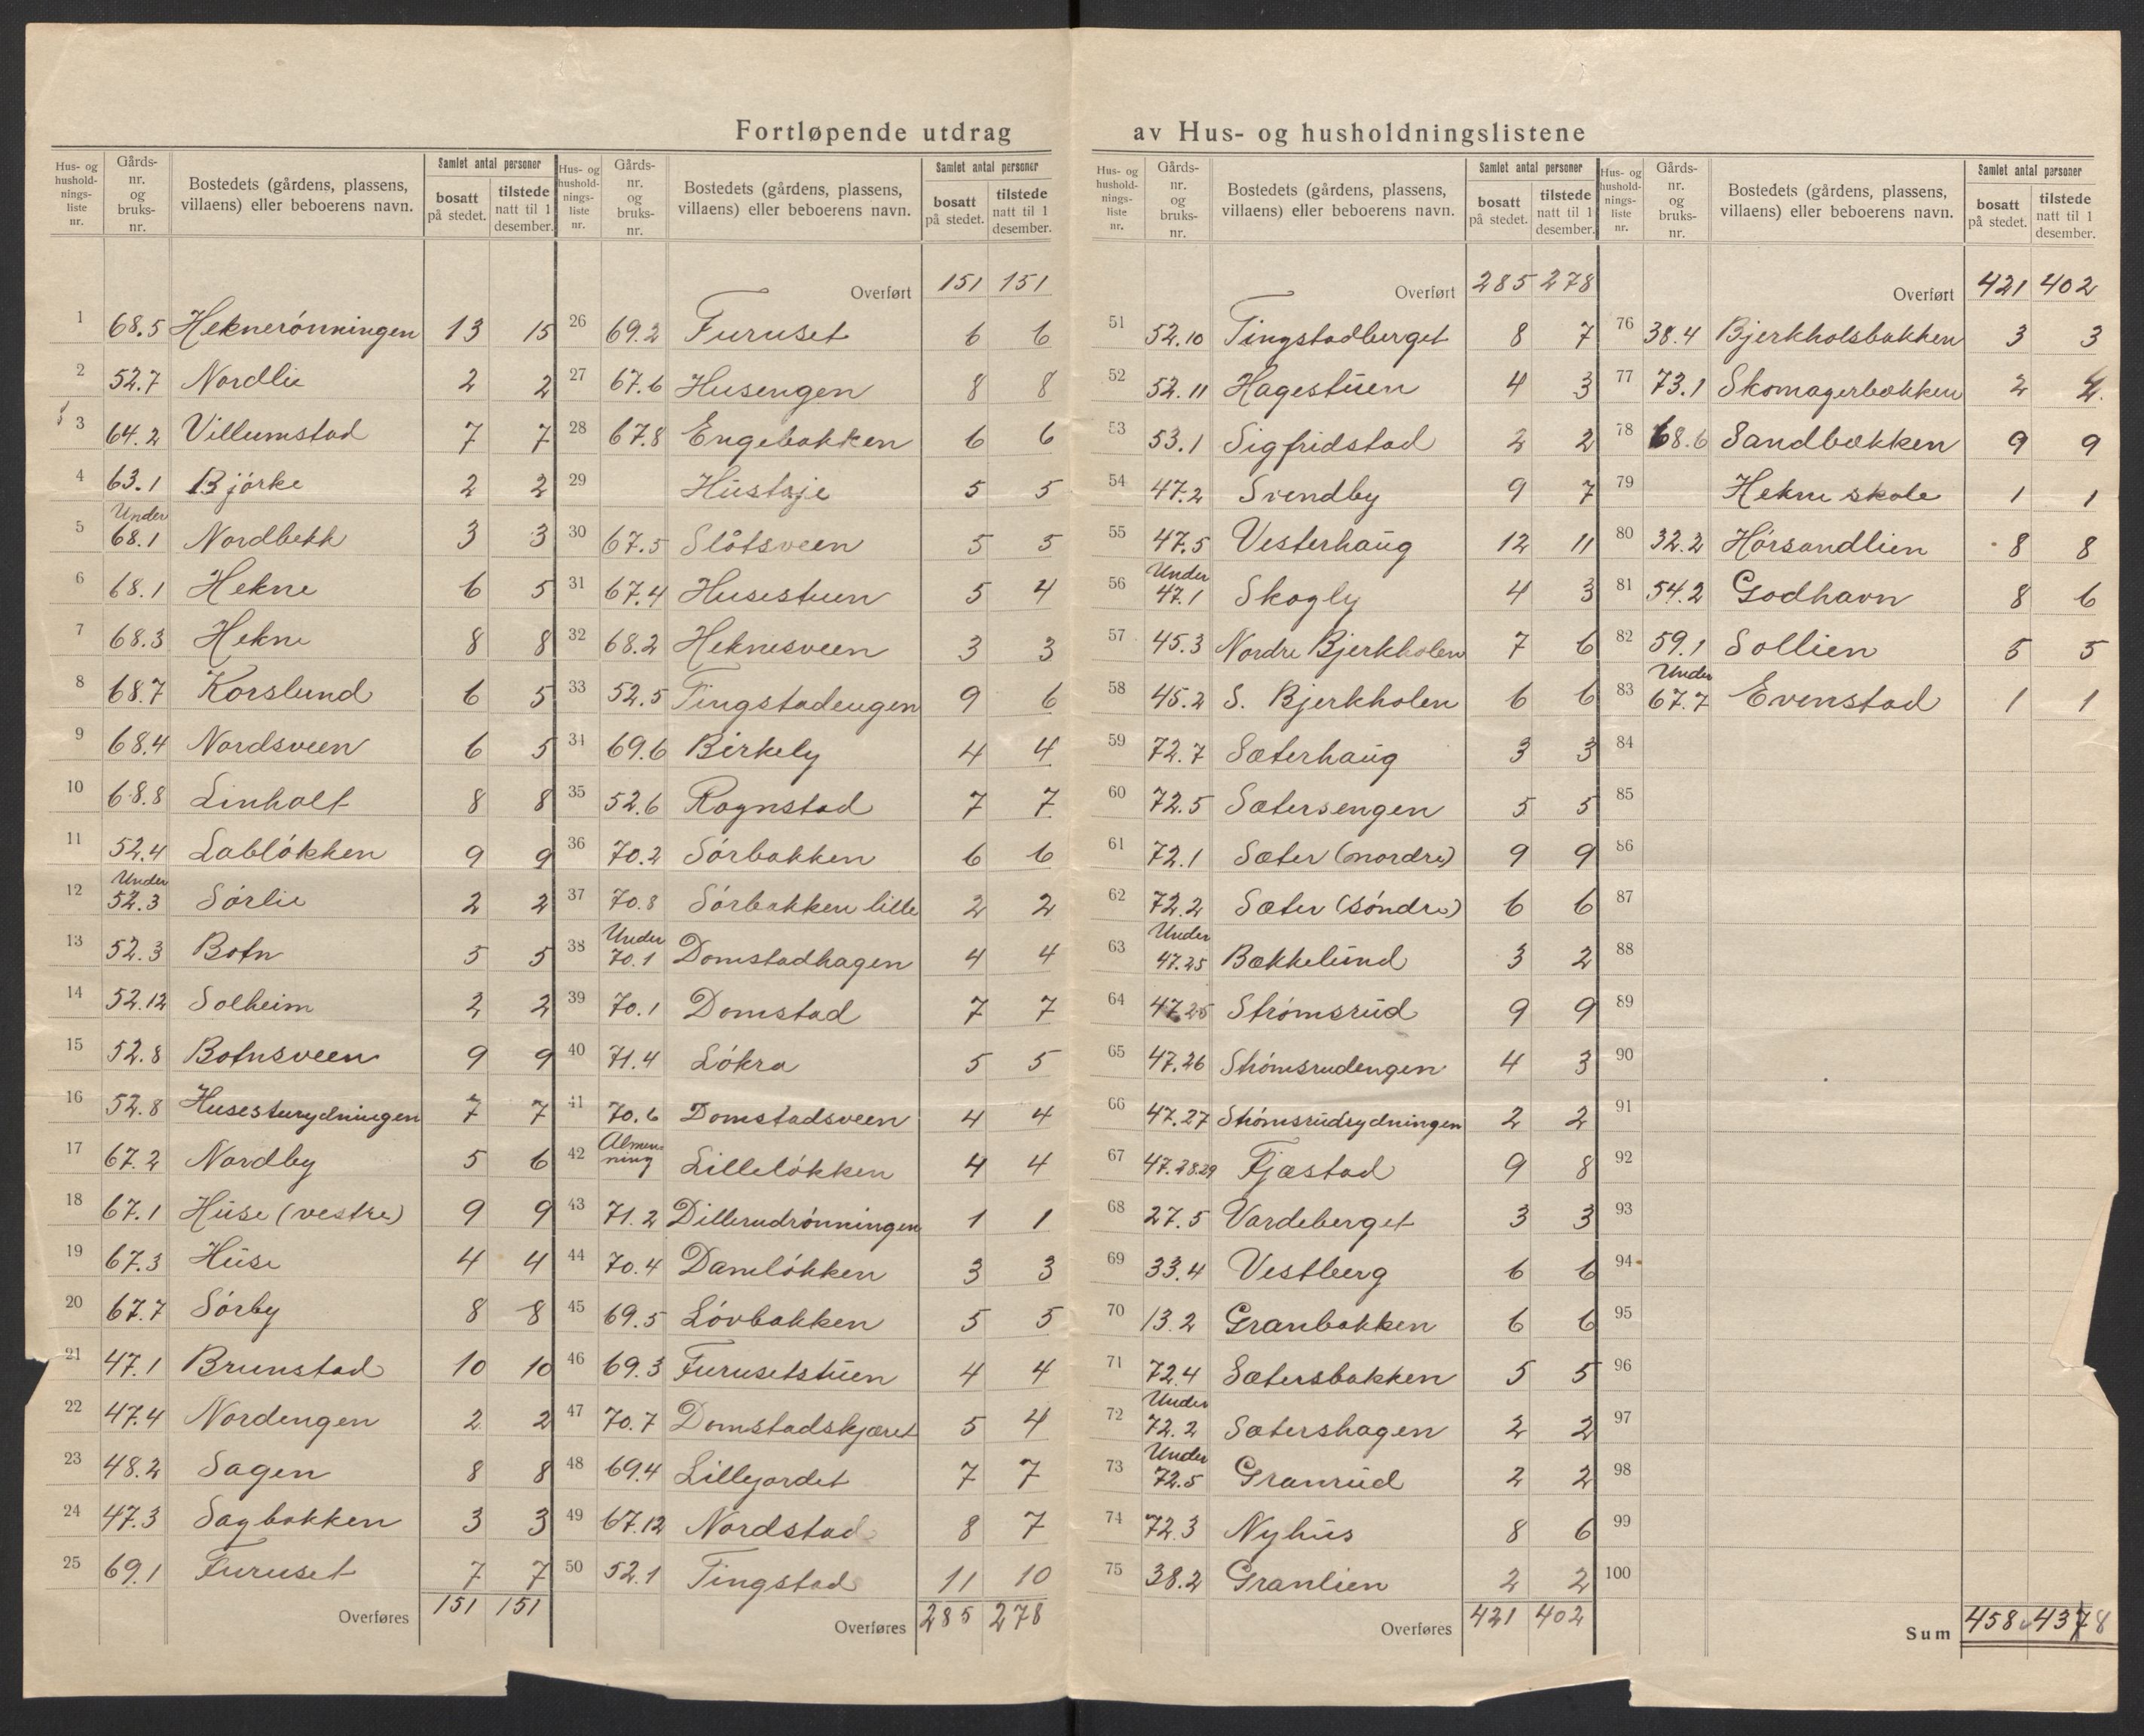 Fortløpende utdrag av Hus- og husholdningslistene
Hus- og husholdnings-liste nr. Gårds-nr. og bruks-nr. Bostedets (gårdens, plassens, villaens) eller beboerens navn. Samlet antal personer bosatt på stedet. tilstede natt til 1 desember.
1 68.5 Heknerönningen 13 15
2 52.7 Nordlie 2 2
3 64.2 Villumstad 7 7
4 63.1 Björke 2 2
5 Under 68.1 Nordbekk 3 3
6 68.1 Hekne 6 5
7 68.3 Hekne 8 8
8 68.7 Korslund 6 5
9 68.4 Nordsveen 6 5
10 68.8 Linholt 8 8
11 52.4 Lablökken 9 9
12 Under 52.3 Sörlie 2 2
13 52.3 Botn 5 5
14 52.12 Solheim 2 2
15 52.8 Botnsveen 9 9
16 52.8 Husesturydningen 7 7
17 67.2 Nordby 5 6
18 67.1 Huse (vestre) 9 9
19 67.3 Huse 4 4
20 67.7 Sörby 8 8
21 47.1 Brunstad 10 10
22 47.4 Nordengen 2 2
23 48.2 Sagen 8 8
24 47.3 Sagbakken 3 3
25 69.1 Furuset 7 7
Overføres 151 151
Hus- og husholdnings-liste nr. Gårds-nr. og bruks-nr. Bostedets (gårdens, plassens, villaens) eller beboerens navn. Samlet antal personer bosatt på stedet. tilstede natt til 1 desember.
Overført 151 151
26 69.2 Furuset 6 6
27 67.6 Husengen 8 8
28 67.8 Engebakken 6 6
29 Hustøje 5 5
30 67.5 Slåtsveen 5 5
31 67.4 Husestuen 5 4
32 68.2 Heknesveen 3 3
33 52.5 Tingstadengen 9 6
34 69.6 Birkely 4 4
35 52.6 Rognstad 7 7
36 70.2 Sörbakken 6 6
37 70.8 Sörbakken lille 2 2
38 Under 70.1 Domstadhagen 4 4
39 70.1 Domstad 7 7
40 71.4 Lökra 5 5
41 70.6 Domstadsveen 4 4
42 Almenning Lillelökken 4 4
43 71.2 Dillerudrönningen 1 1
44 70.4 Damlökken 3 3
45 69.5 Lövbakken 5 5
46 69.3 Furusetstuen 4 4
47 70.7 Domstadskjæret 5 4
48 69.4 Lillejordet 7 7
49 67.12 Nordstad 8 7
50 52.1 Tingstad 11 10
Overføres 285 278
Hus- og husholdnings-liste nr. Gårds-nr. og bruks-nr. Bostedets (gårdens, plassens, villaens) eller beboerens navn. Samlet antal personer bosatt på stedet. tilstede natt til 1 desember.
Overført 285 278
51 52.10 Tingstadberget 8 7
52 52.11 Hagestuen 4 3
53 53.1 Sigfridstad 2 2
54 47.2 Svendby 9 7
55 47.5 Vesterhaug 12 11
56 Under 47.1 Skogly 4 3
57 45.3 Nordre Bjerkholen 7 6
58 45.2 S. Bjerkholen 6 6
59 72.7 Sæterhaug 3 3
60 72.5 Sætersengen 5 5
61 72.1 Sæter (nordre) 9 9
62 72.2 Sæter (söndre) 6 6
63 Under 47.25 Bækkelund 3 2
64 47.25 Strömsrud 9 9
65 47.26 Strömsrudengen 4 3
66 47.27 Strömsrudrydningen 2 2
67 47.28.29 Fjæstad 9 8
68 27.5 Vardeberget 3 3
69 33.4 Vestberg 6 6
70 13.2 Granbakken 6 6
71 72.4 Sætersbakken 5 5
72 Under 72.2 Sætershagen 2 2
73 Under 72.5 Granrud 2 2
74 72.3 Nyhus 8 6
75 38.2 Granlien 2 2
Overføres 421 402
Hus- og husholdnings-liste nr. Gårds-nr. og bruks-nr. Bostedets (gårdens, plassens, villaens) eller beboerens navn. Samlet antal personer bosatt på stedet. tilstede natt til 1 desember.
Overført 421 402
76 38.4 Bjerkholsbakken 3 3
77 73.1 Skomagerbakken 2 2
78 68.6 Sandbækken 9 9
79 Hekne skole 1 1
80 32.2 Hörsandlien 8 8
81 54.2 Godhavn 8 6
82 59.1 Sollien 5 5
83 Under 67.7 Evenstad 1 1
84
85
86
87
88
89
90
91
92
93
94
95
96
97
98
99
100
Sum 458 4378